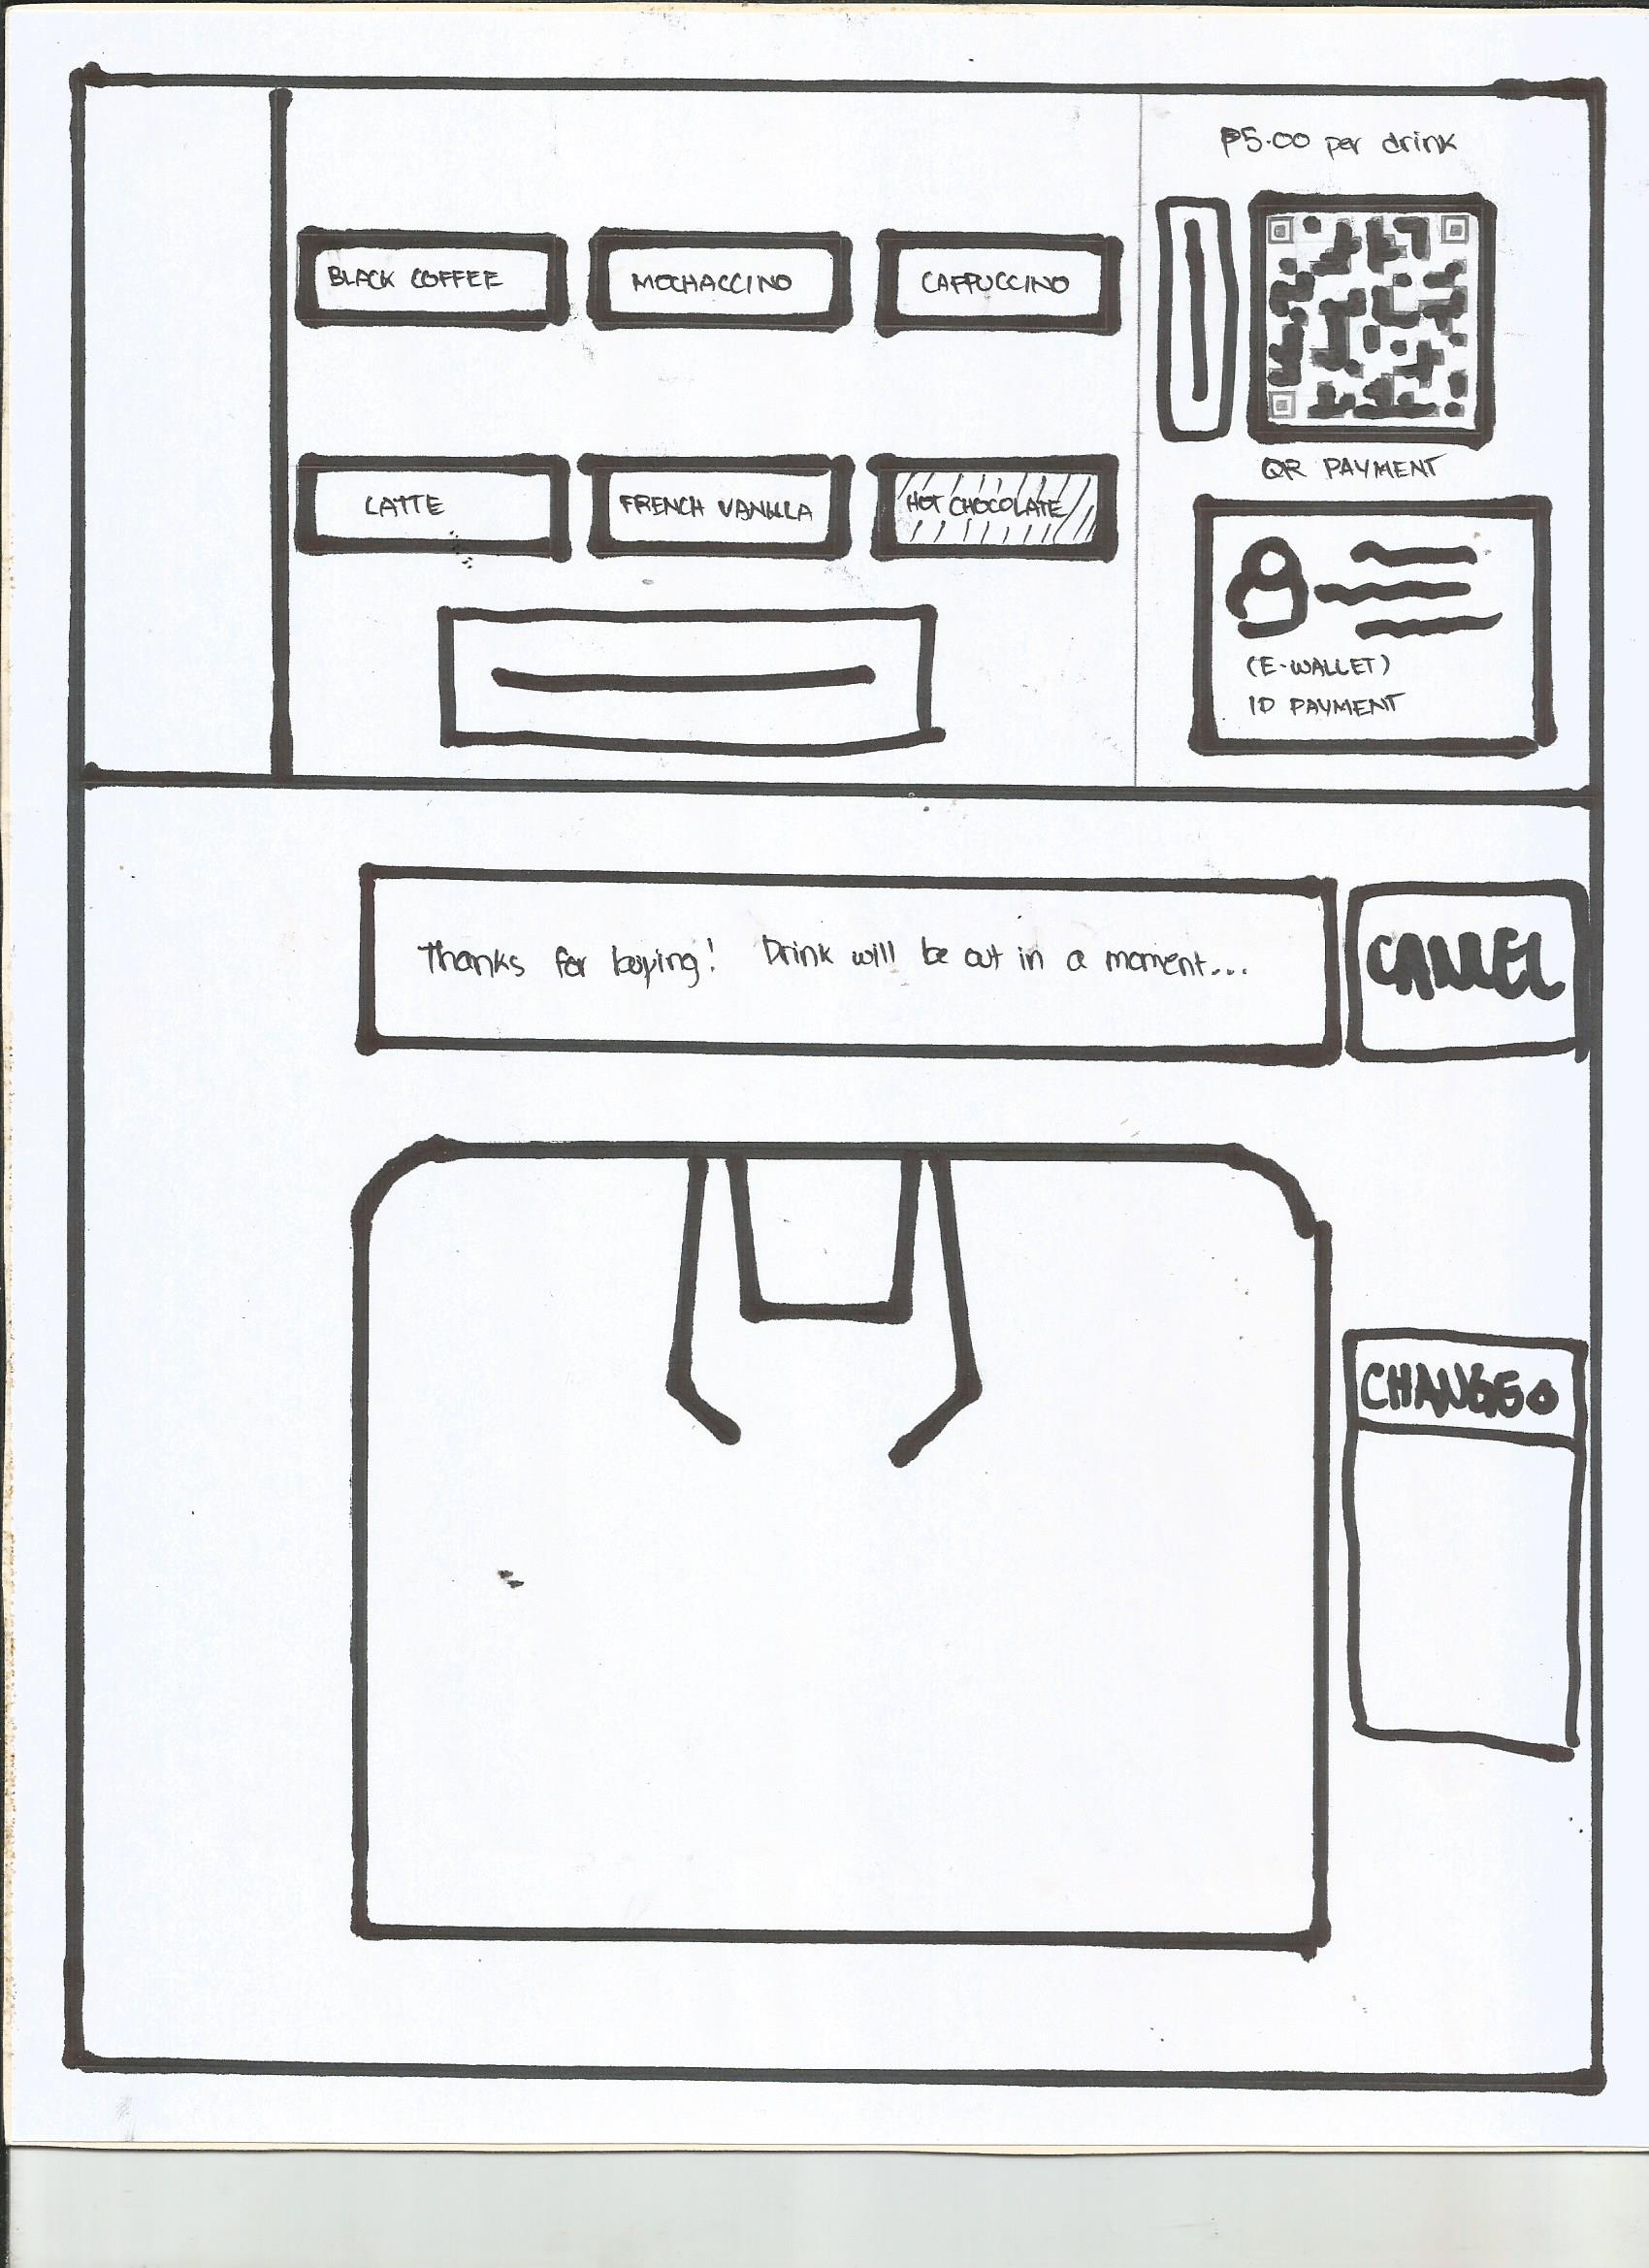 ₱5.00 per drink
BLACK COFFEE
MOCHACCINO
CAPPUCCINO
QR PAYMENT
LATTE
FRENCH VANILLA
HOT CHOCOLATE
(E-WALLET)
ID PAYMENT
Thanks for buying! Drink will be out in a moment...
CANCEL
CHANGE